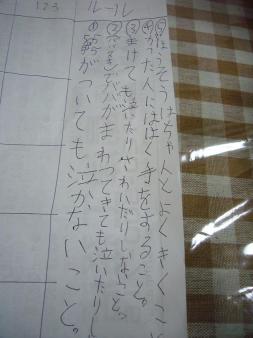 123
ルール
①がついても泣かないこと。
②ババがまわってきても泣いたりし
③まけても泣いたりさわいだりしないこと。
④かった人にははく手をすること。
⑤ほうそうはちゃんとよくきくこと